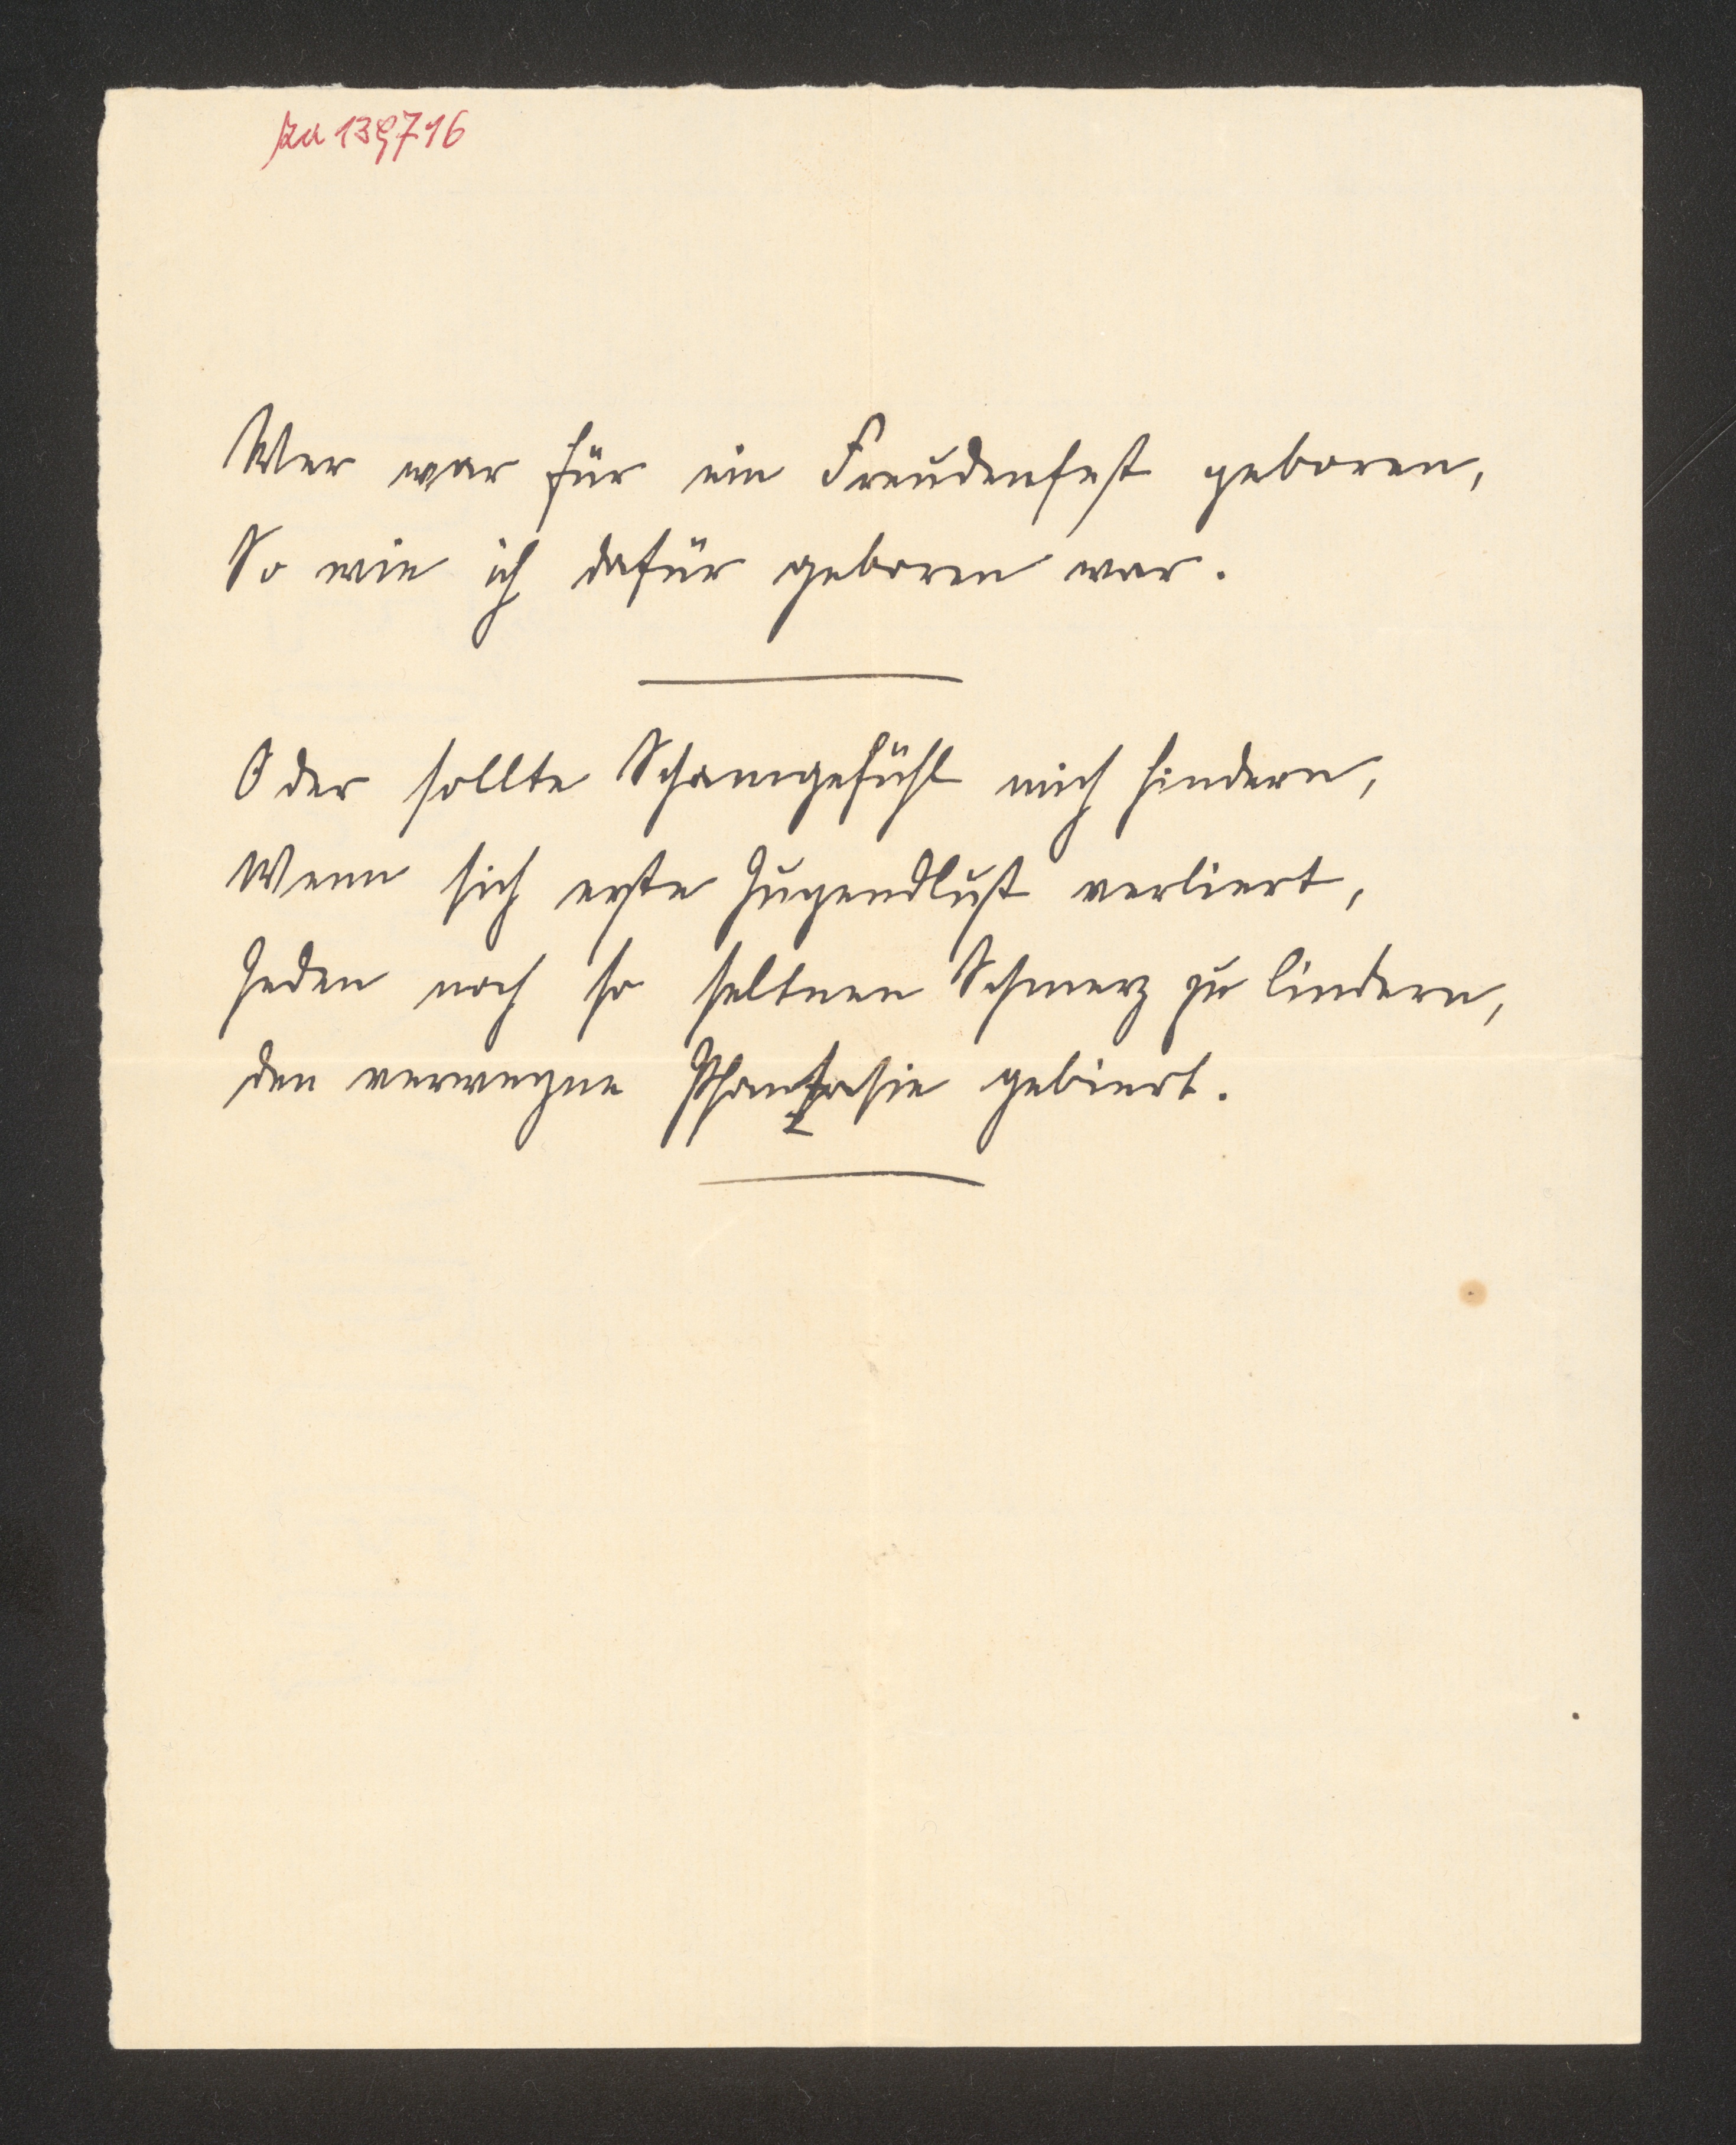 Za 139716
Wer war für ein Freudenfest geboren,
So wie ich dafür geboren war.
Oder sollte Schamgefühl mich hindern,
Wenn sich erste Jugendlust verliert,
Jeden noch so seltnen Schmerz zu lindern,
den verwegne Phantasie gebiert.